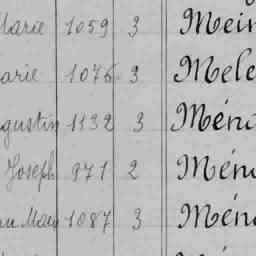 Marie 1059 3 Mein
arie 1076 3 Mele
gustin 1132 3 Ména
Joseph 971 2 Mén
1087 3 Mén